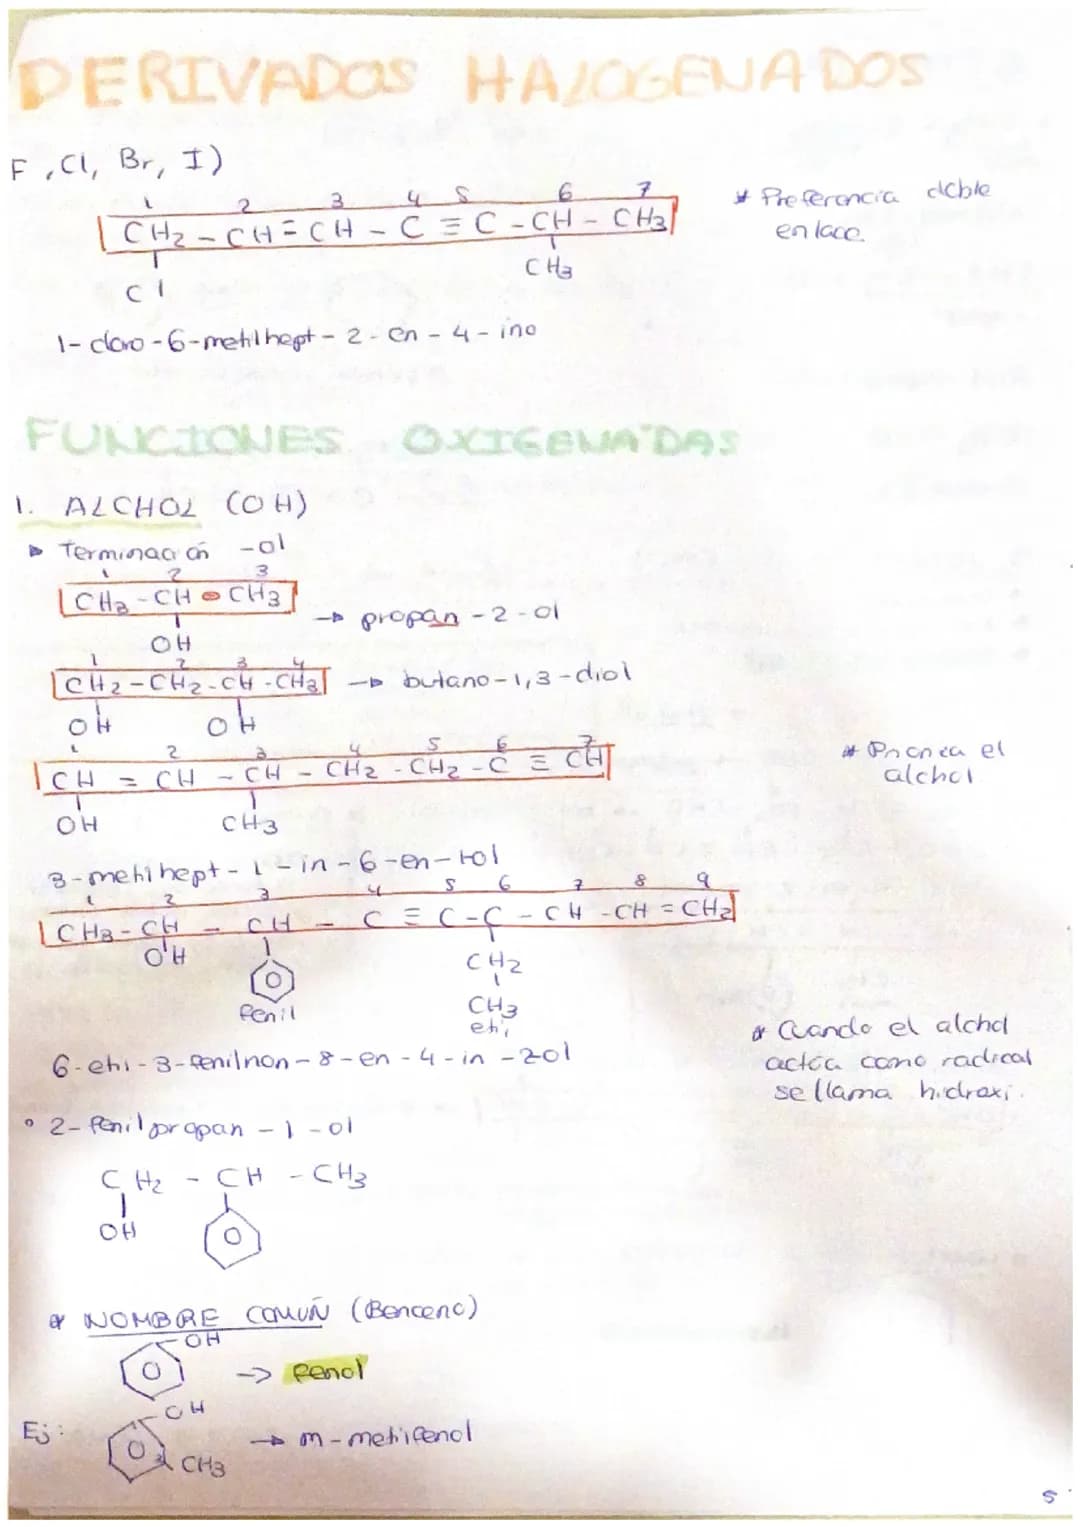 DERIVADOS HALOGENADOS
F, Cl, Br, I)
1 2 3 4 5 6 7
CH2 - CH = CH - C ≡ C - CH - CH3
Cl CH3
* Preferencia doble
enlace
1-cloro-6-metilhept-2-en-4-ino
FUNCIONES OXIGENADAS
1. ALCHOL (OH)
▸ Terminación -ol
1 2 3
CH3 - CH - CH3
OH
→ propan-2-ol
1 2 3 4
CH2-CH2-CH-CH3 → butano-1,3-diol
OH OH
1 2 3 4 5 6 7
CH = CH - CH - CH2 - CH2 - C ≡ CH
OH CH3
* Prioriza el
alchol
3-metihept-1-in-6-en-1ol
1 2 3 4 5 6 7 8 9
CH3 - CH - CH - C ≡ C - C - CH - CH = CH2
OH CH2
fenil CH3
eti,
6-eti-3-fenilnon-8-en-4-in-2ol
* Cuando el alchol
actúa como radical
se llama hidroxi.
° 2-fenilpropan-1-ol
CH2 - CH - CH3
OH
* NOMBRE COMUÑ (Benceno)
OH
→ fenol
OH
Ej: → m-metifenol
CH3
5